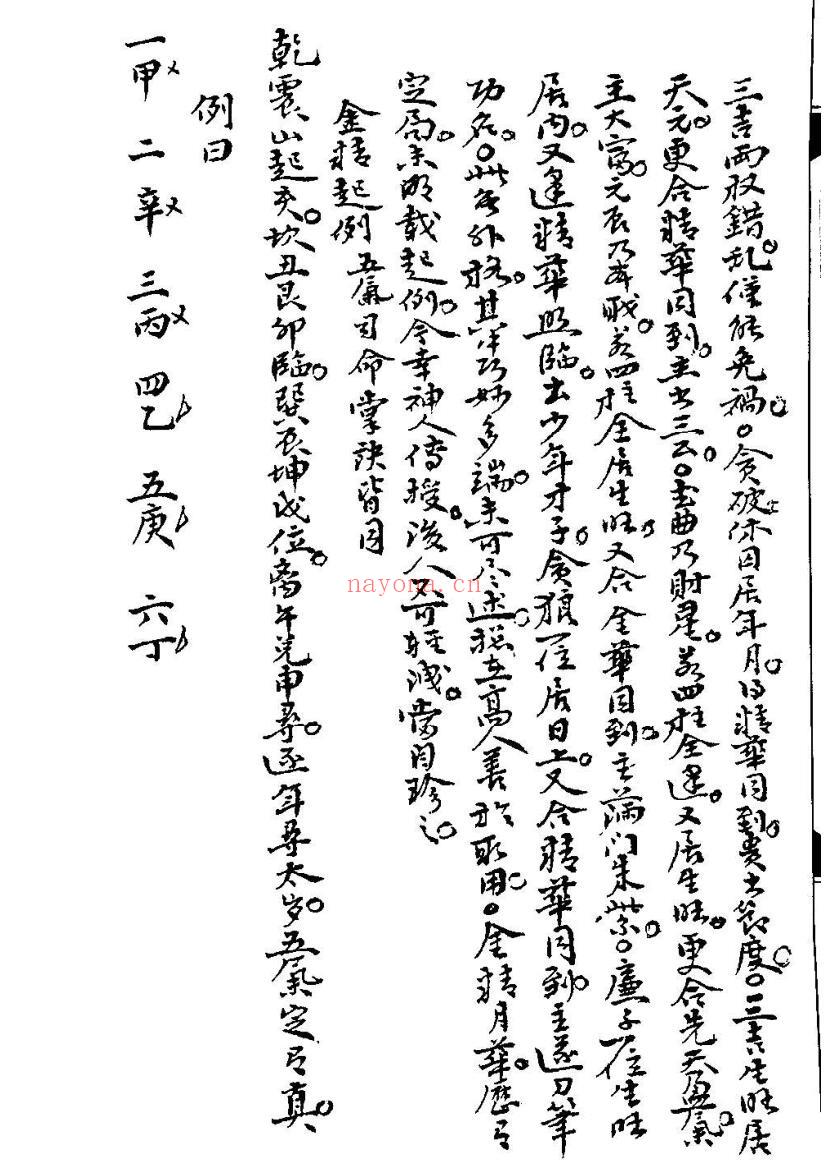 三吉両权錯乱。僅能免禍。貪破休囚居年月。得精華同到。貴出節度。三吉生旺居
天元。更合精華同到。主出三公。武曲乃財星。若四柱全逢。又居生旺。更合先天盈氣。
主大富。元辰乃本職。若四柱全居生旺。又合金華同到。主滿门朱紫。廉子一位生旺
居内。又逢精華照臨。出少年才子。貪狼一位居日上。又合精華同到。主遂刀筆
功名。此局外移。其中巧妙多端。未可尽述。搃在高人善於取用。金精月華。歷有
定局。未明載起例。今幸神人傳授。後人不可輕洩。當自珍之。
金精起例 五氣司命掌訣皆同
乾震山起亥。坎丑艮卯臨。巽辰坤戌位。离午兑申尋。逐年尋太岁。五氣定有真。
例曰
一甲 二辛 三丙 四乙 五庚 六丁
nayona.cn